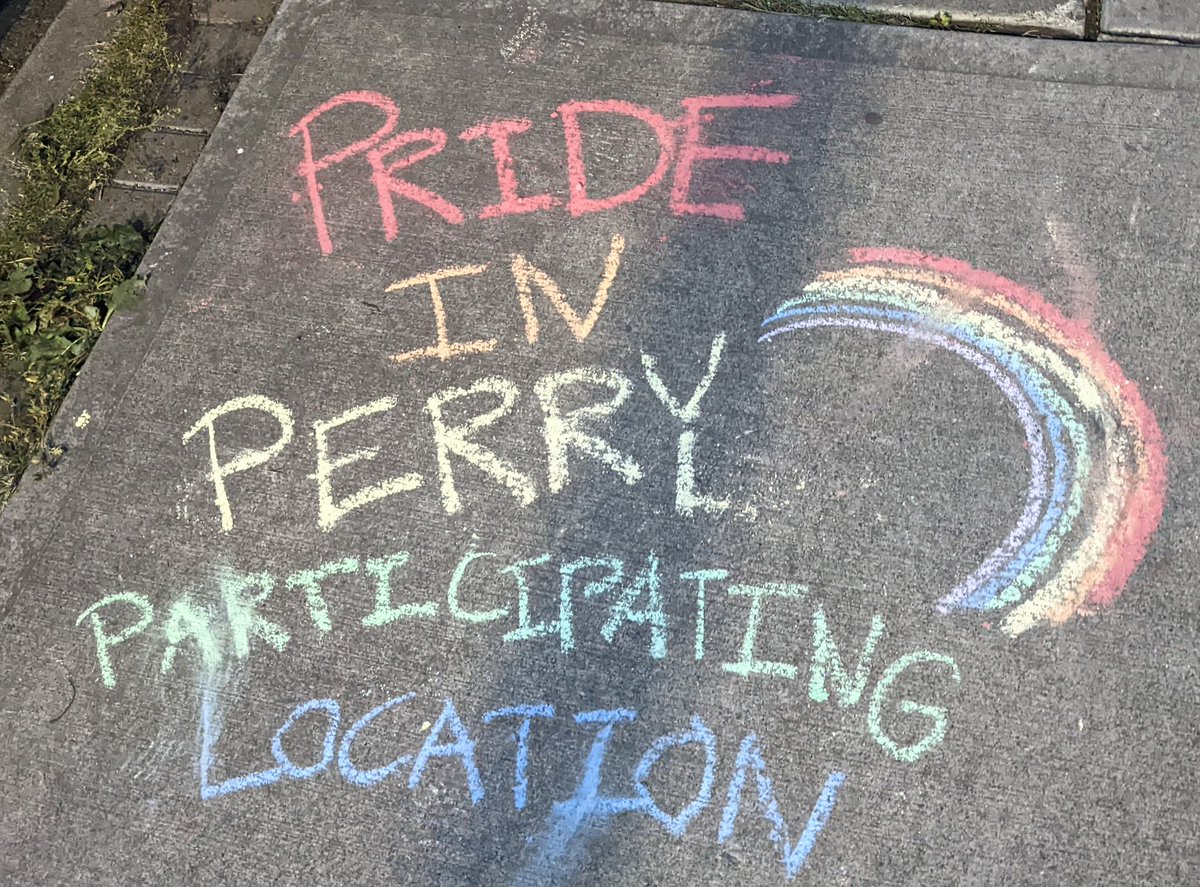 PRIDE
IN
PERRY
PARTICIPATING
LOCATION